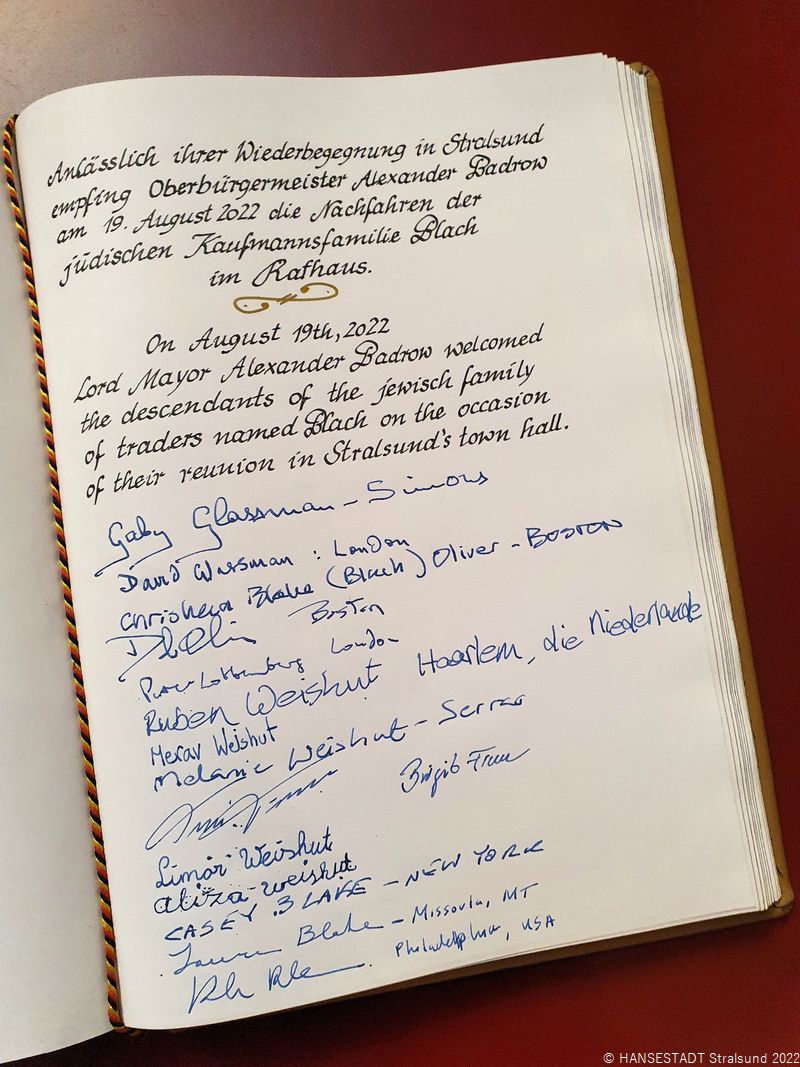 Anlässlich ihrer Wiederbegegnung in Stralsund
empfing Oberbürgermeister Alexander Badrow
am 19. August 2022 die Nachfahren der
jüdischen Kaufmannsfamilie Blach
im Rathaus.
On August 19th, 2022
Lord Mayor Alexander Badrow welcomed
the descendants of the jewisch family
of traders named Blach on the occasion
of their reunion in Stralsund's town hall.
Gaby Glassman - Simons
David Wassman : London
Blake (Blach) Oliver - BOSTON
Boston
London
Ruben Weishut Haarlem, die Niederlande
Merav Weishut
Melanie Weishut - Serrao
Birgit
Limor Weishut
aliza weishut
CASEY BLAKE - NEW YORK
Lauren Blake - Missoula, MT
Philadelphia, USA
© HANSESTADT Stralsund 2022